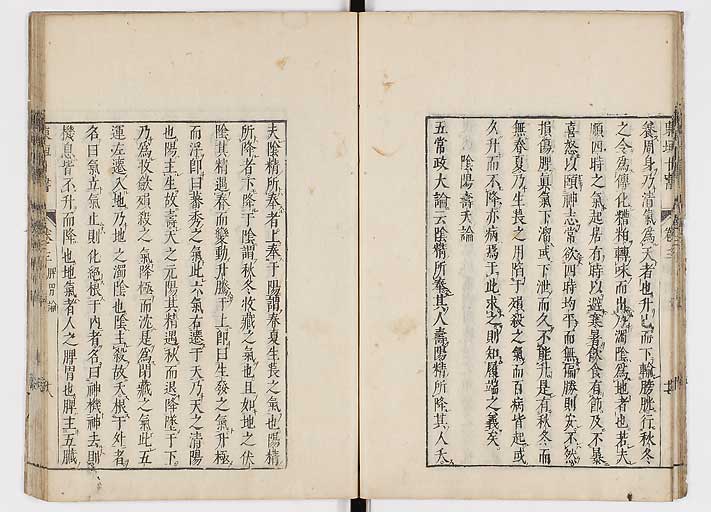 養周身乃清氣爲天者也升已而下輸膀胱行秋冬
之令爲傳化糟粕轉味而出乃濁陰爲地者也若夫
順四時之氣起居有時以避寒暑飲食有節及不暴
喜怒以頤神志常欲四時均平而無偏勝則安不然
損傷脾真氣下溜或下泄而久不能升是有秋冬而
無春夏乃生長之用陷于殞殺之氣而百病皆起或
久升而不降亦病焉于此求之則知履端之義矣
陰陽壽夭論
五常政大論云陰精所奉其人壽陽精所降其人夭
夫陰精所奉者上奉于陽謂春夏生長之氣也陽精
所降者下降于陰謂秋冬收藏之氣也且如地之伏
陰其精遇春而變動升騰于上即曰生發之氣升極
而浮即曰蕃秀之氣此六氣右遷于天乃天之清陽
也陽主生故壽天之元陽其精遇秋而退降墜于下
乃爲收斂殞殺之氣降極而沈是爲閉藏之氣此五
運左遷入地乃地之濁陰也陰主殺故夭根于外者
名曰氣立氣止則化絕根于內者名曰神機神去則
機息皆不升而降也地氣者人之脾胃也脾主五臟
卷三 脾胃論